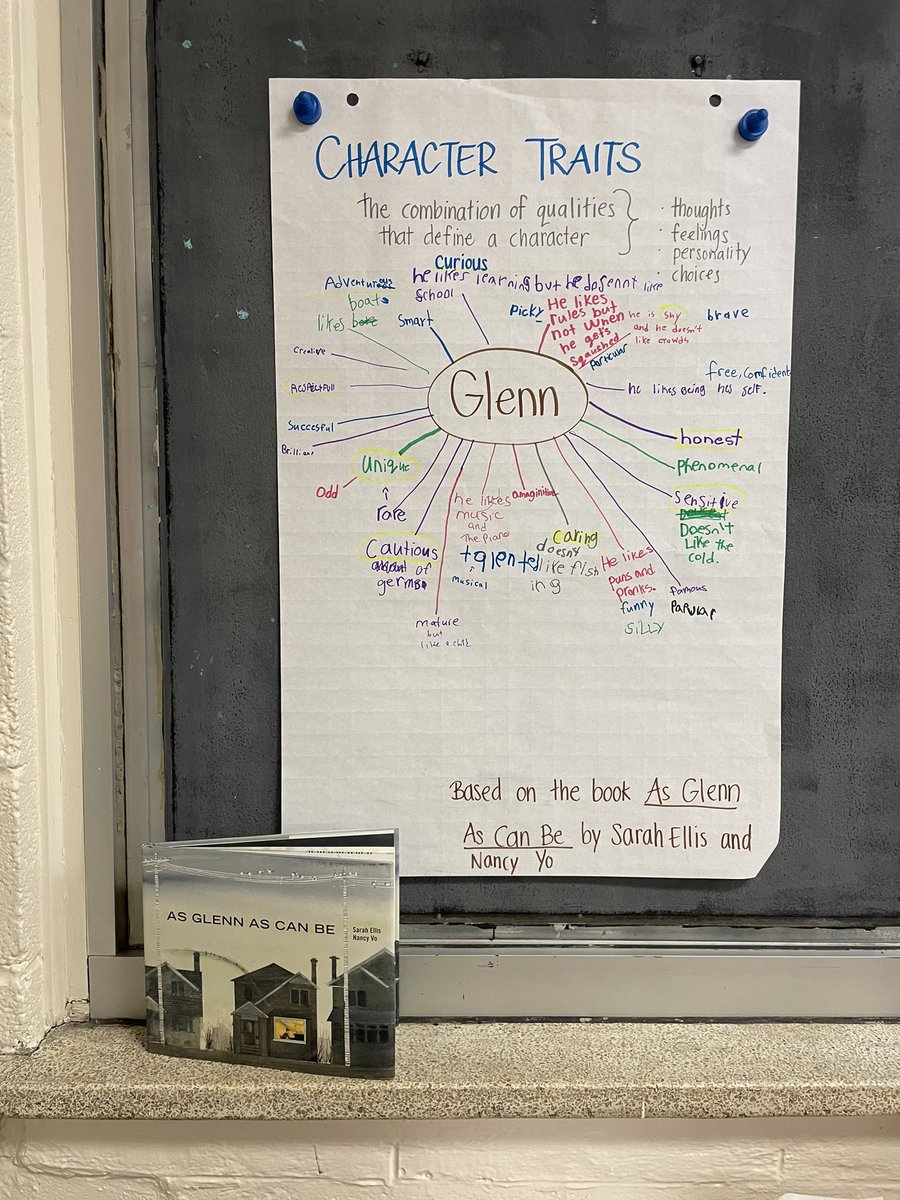 CHARACTER TRAITS
the combination of qualities
that define a character
· thoughts
· feelings
· personality
· choices
Curious
he likes learning but he dosennt like
school
Adventurous
boats
likes
Smart
Picky
He likes
rules but
not when
he gets
squushed
particular
he is shy
and he doesn't
like crowds
brave
Creative
respectfull
Succesful
Brilliant
Glenn
free, Comfident
he likes Being his self.
honest
Phenomenal
unique
odd
↑
rare
Cautious
of
germs
he likes
music
and
The Piano
talented
↑
Musical
amaginitive
Caring
doesn't
like fish
ing
He likes
puns and
pranks.
funny
SiLLY
Sensitive
Doesn't
Like the
cold.
famous
Papular
mature
but
like a child
Based on the book As Glenn
As Can Be by Sarah Ellis and
Nancy Yo
AS GLENN AS CAN BE
Sarah Ellis
Nancy Vo